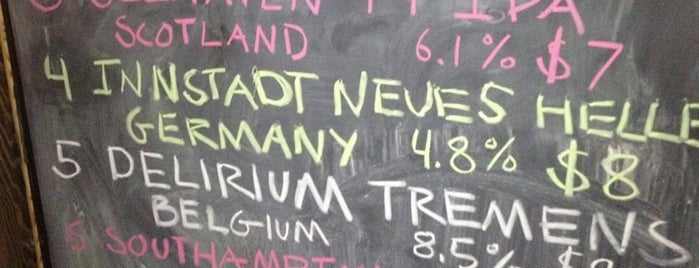 IPA
SCOTLAND 6.1% $7
4 INNSTADT NEUES HELLE
GERMANY 4.8% $8
5 DELIRIUM TREMENS
BELGIUM 8.5%
SOUTHAMPT